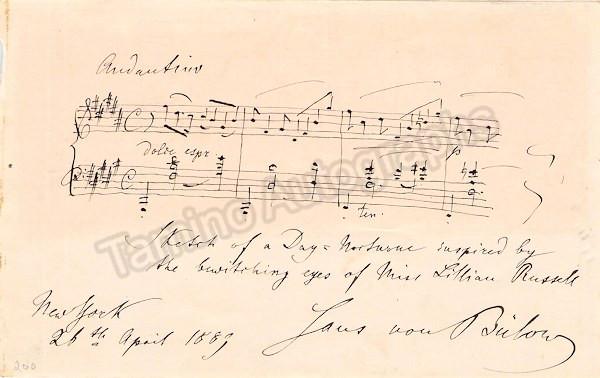 Andantino
dolce espr
p
ten.
Sketch of a Day=Nocturne inspired by
the bewitching eyes of Miss Lillian Russell
New York
26th April 1889
Hans von Bülow
200
Tamino Autographs